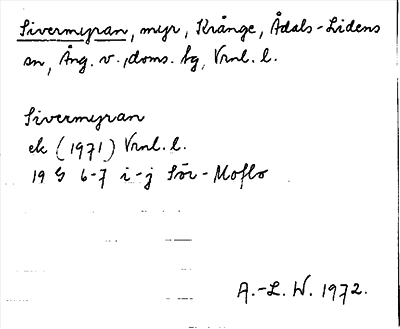 Sivermyran, myr, Krånge, Ådals-Lidens
sn, Ång. v., doms. bg, Vrnl. l.
Sivermyran
ek (1971) Vrnl. l.
19 G 6-7 i-j Sör-Moflo
A.-L. W. 1972.